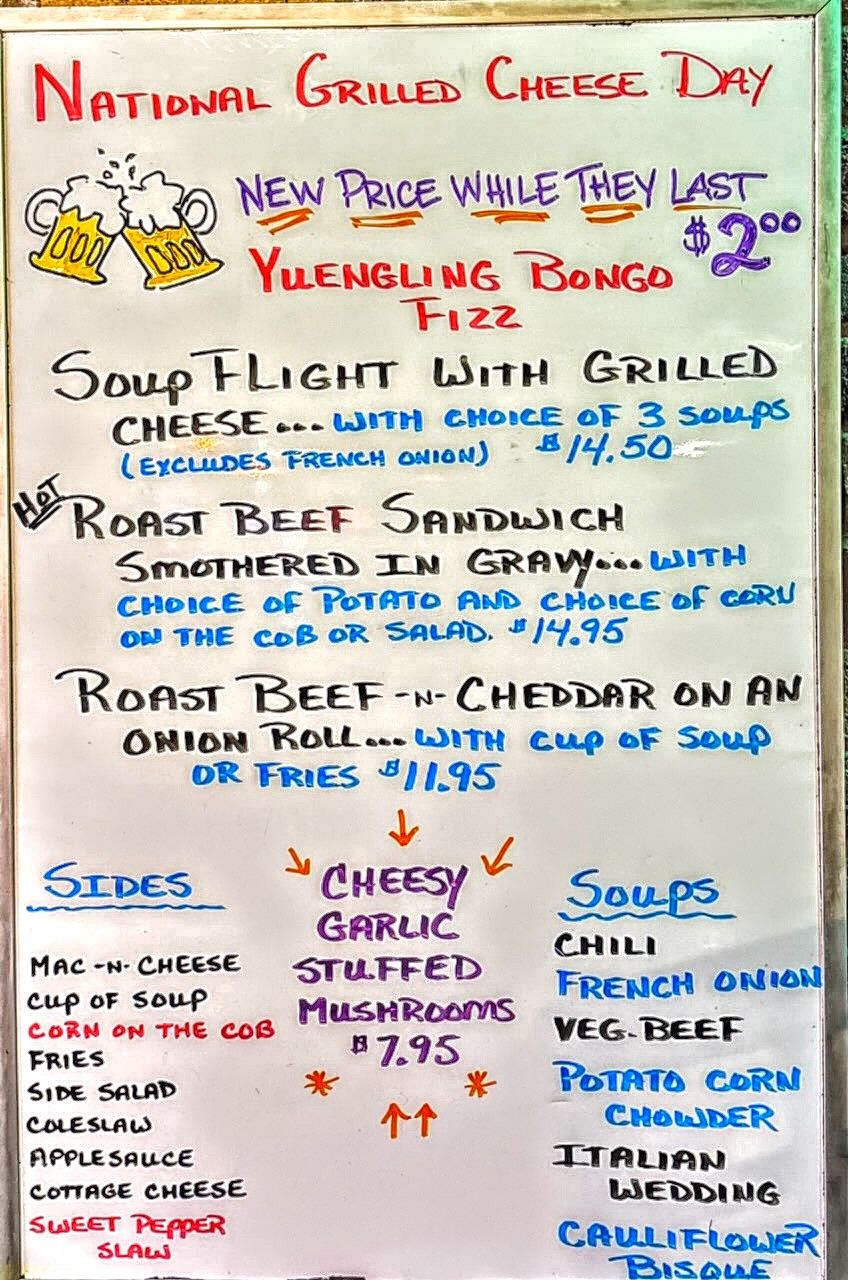 NATIONAL GRILLED CHEESE DAY
NEW PRICE WHILE THEY LAST
$2.00
YUENGLING BONGO
FIZZ
SOUP FLIGHT WITH GRILLED
CHEESE... WITH CHOICE OF 3 SOUPS
(EXCLUDES FRENCH ONION) $14.50
HOT
ROAST BEEF SANDWICH
SMOTHERED IN GRAVY... WITH
CHOICE OF POTATO AND CHOICE OF CORN
ON THE COB OR SALAD. $14.95
ROAST BEEF -N- CHEDDAR ON AN
ONION ROLL... WITH CUP OF SOUP
OR FRIES $11.95
SIDES
MAC -N- CHEESE
CUP OF SOUP
CORN ON THE COB
FRIES
SIDE SALAD
COLESLAW
APPLESAUCE
COTTAGE CHEESE
SWEET PEPPER
SLAW
CHEESY
GARLIC
STUFFED
MUSHROOMS
$7.95
SOUPS
CHILI
FRENCH ONION
VEG-BEEF
POTATO CORN
CHOWDER
ITALIAN
WEDDING
CAULIFLOWER
BISQUE